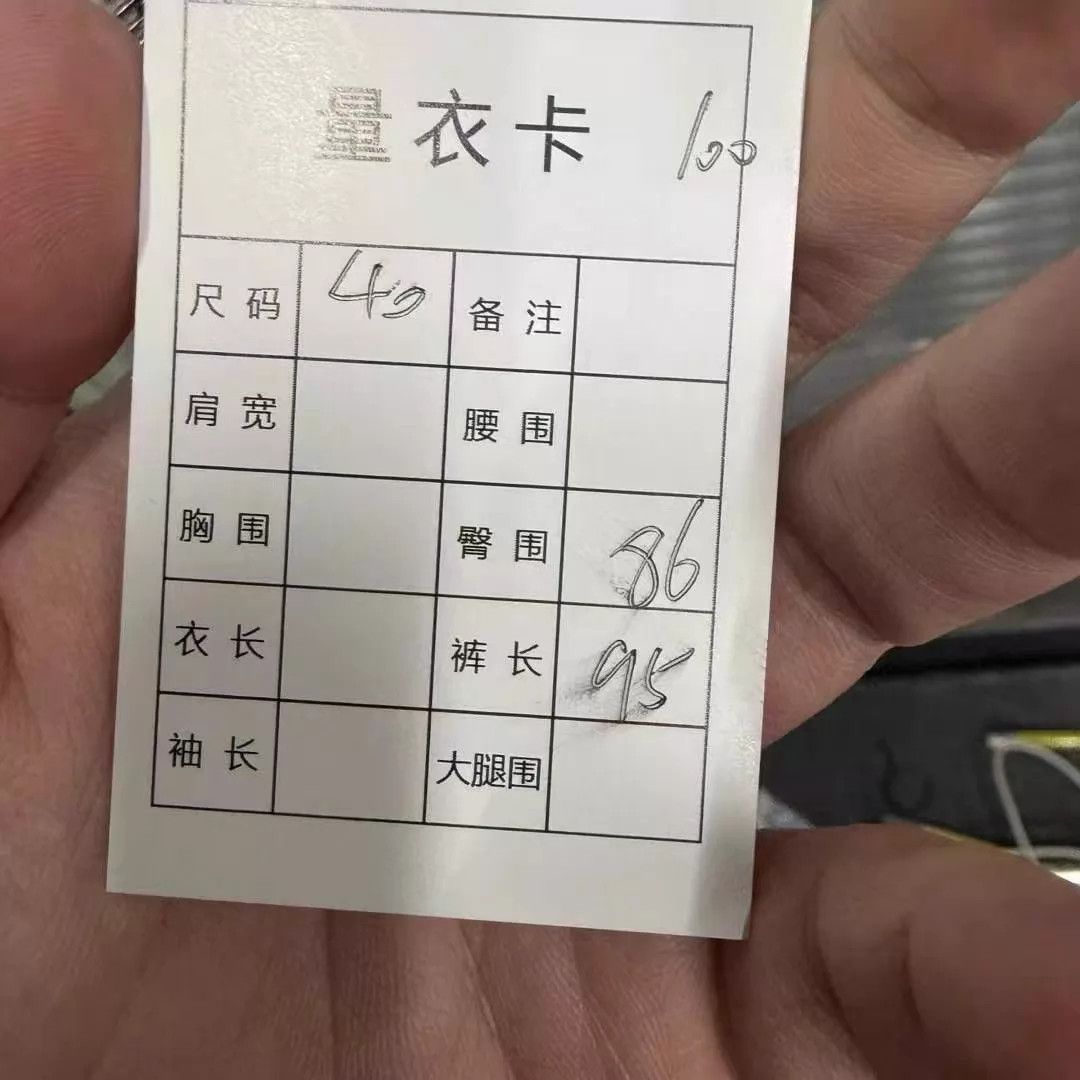 量衣卡 100
尺码 40 备注
肩宽 腰围
胸围 臀围 86
衣长 裤长 95
袖长 大腿围